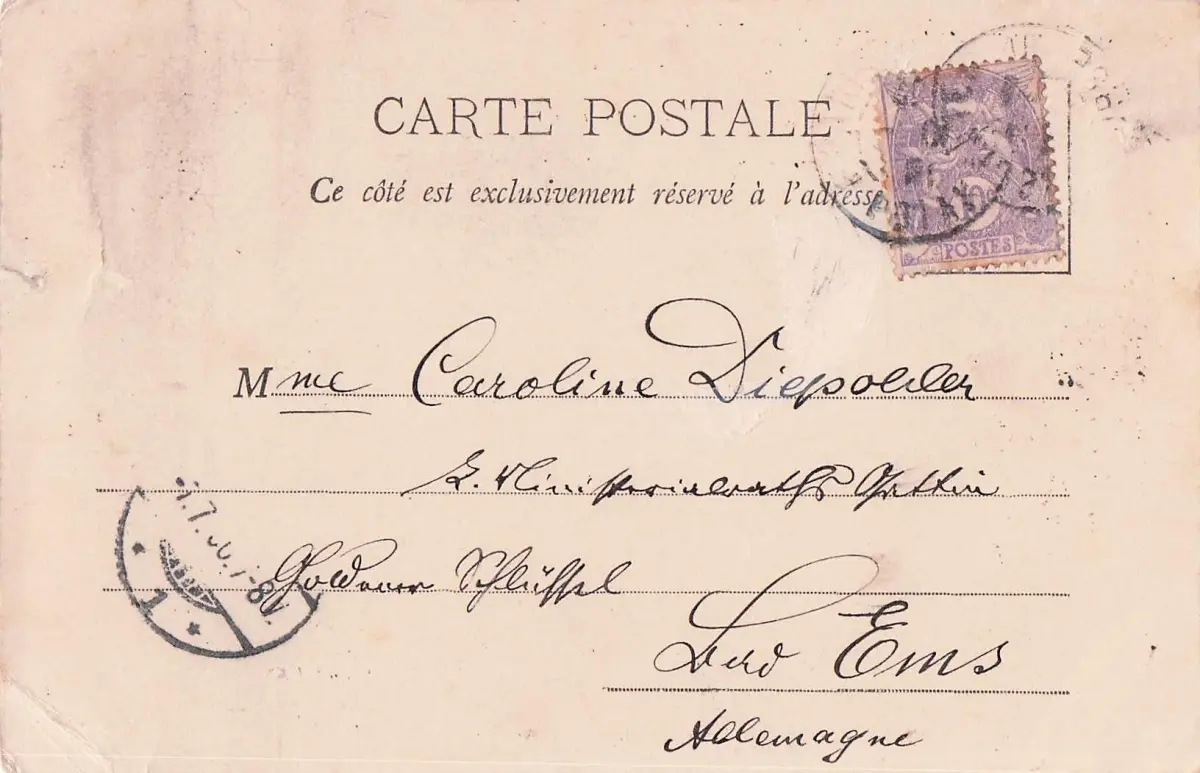 CARTE POSTALE
Ce côté est exclusivement réservé à l'adresse
POSTES
Mme Caroline Diepolder
K. Ministerialraths Gattin
Goldener Schlüssel
Bad Ems
Allemagne